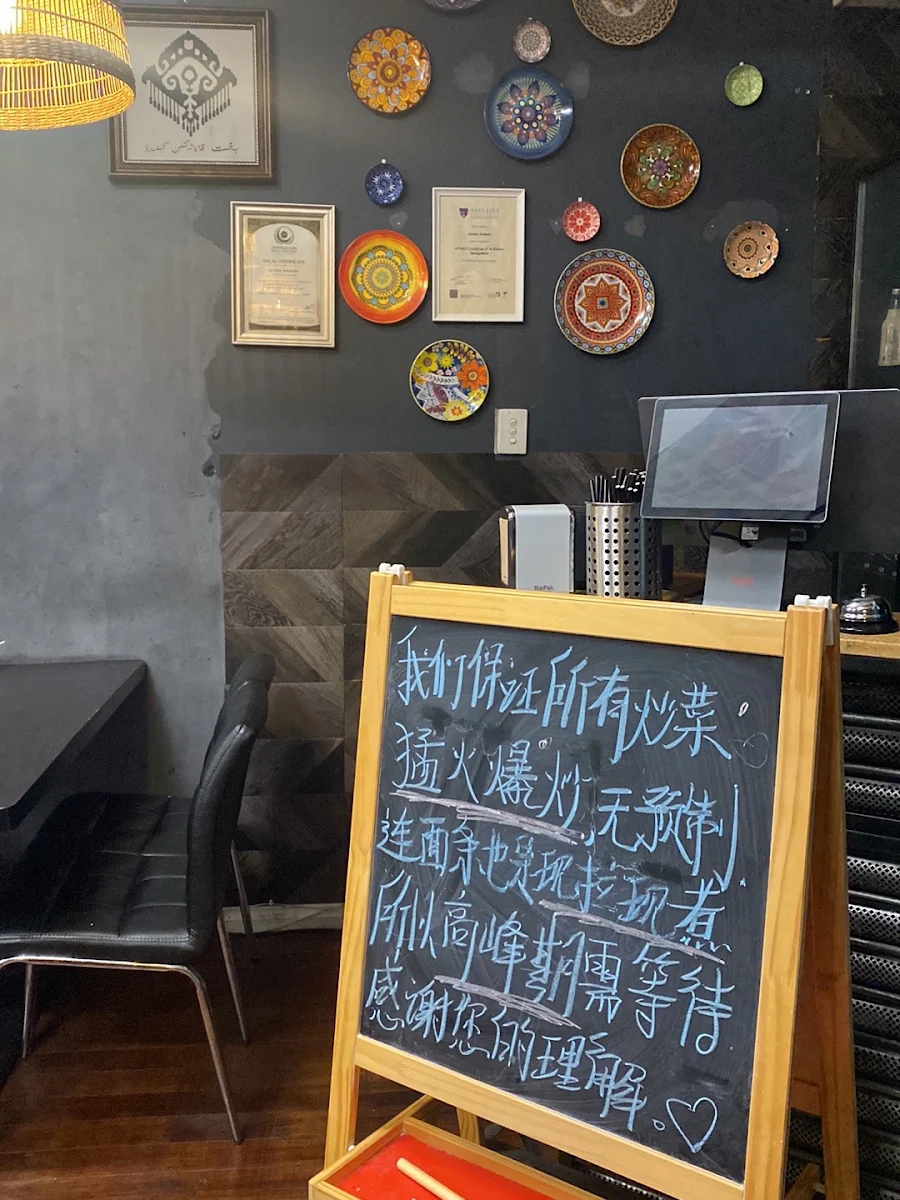 我们保证所有炒菜
猛火爆炒,无预制
连面条也是现拉现煮
所以高峰期需等待
感谢您的理解.♡